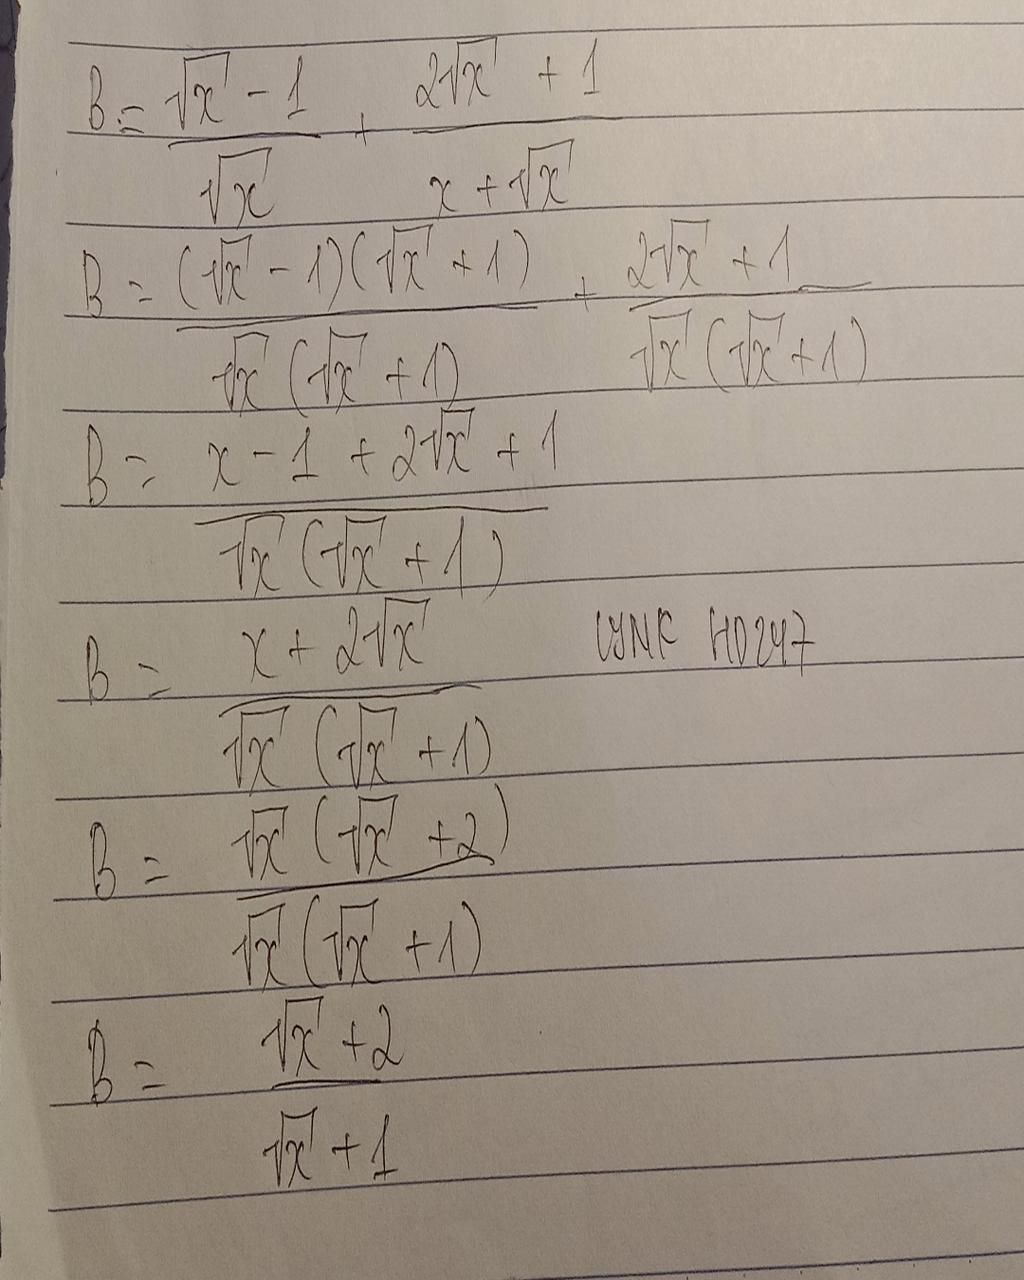 B = (√x - 1)/√x + (2√x + 1)/(x + √x)
B = (√x - 1)(√x + 1)/(√x(√x + 1)) + (2√x + 1)/(√x(√x + 1))
B = (x - 1 + 2√x + 1)/(√x(√x + 1))
B = (x + 2√x)/(√x(√x + 1))
LYNK HD247
B = √x(√x + 2)/(√x(√x + 1))
B = (√x + 2)/(√x + 1)